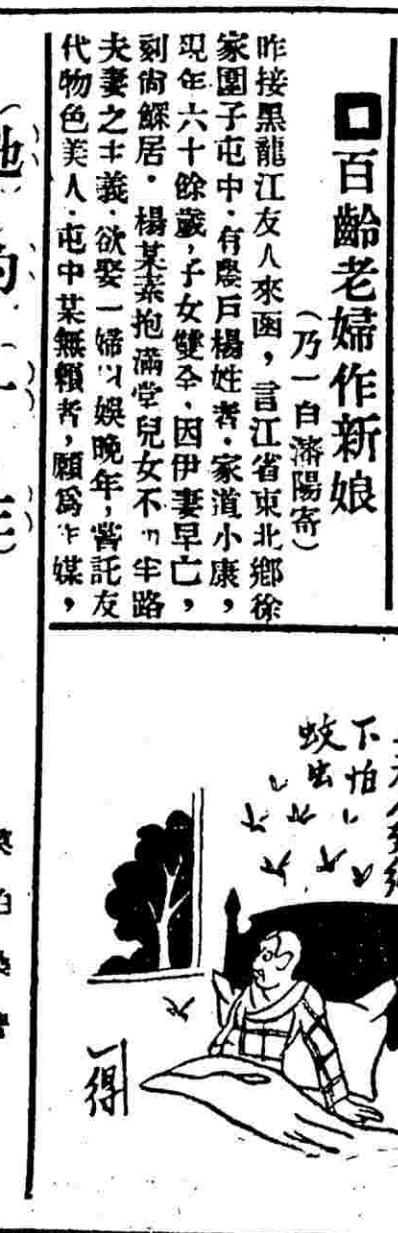 百齡老婦作新娘
（乃一自瀋陽寄）
昨接黑龍江友人來函，言江省東北鄉徐
家圍子屯中．有農戶楊姓者．家道小康，
現年六十餘歲，子女雙全，因伊妻早亡，
刻尙鰥居．楊某素抱滿堂兒女不 半路
夫妻之主義．欲娶一婦以娛晚年，嘗託友
代物色美人．屯中某無賴者，願爲作媒，
下怕
蚊虫
一得